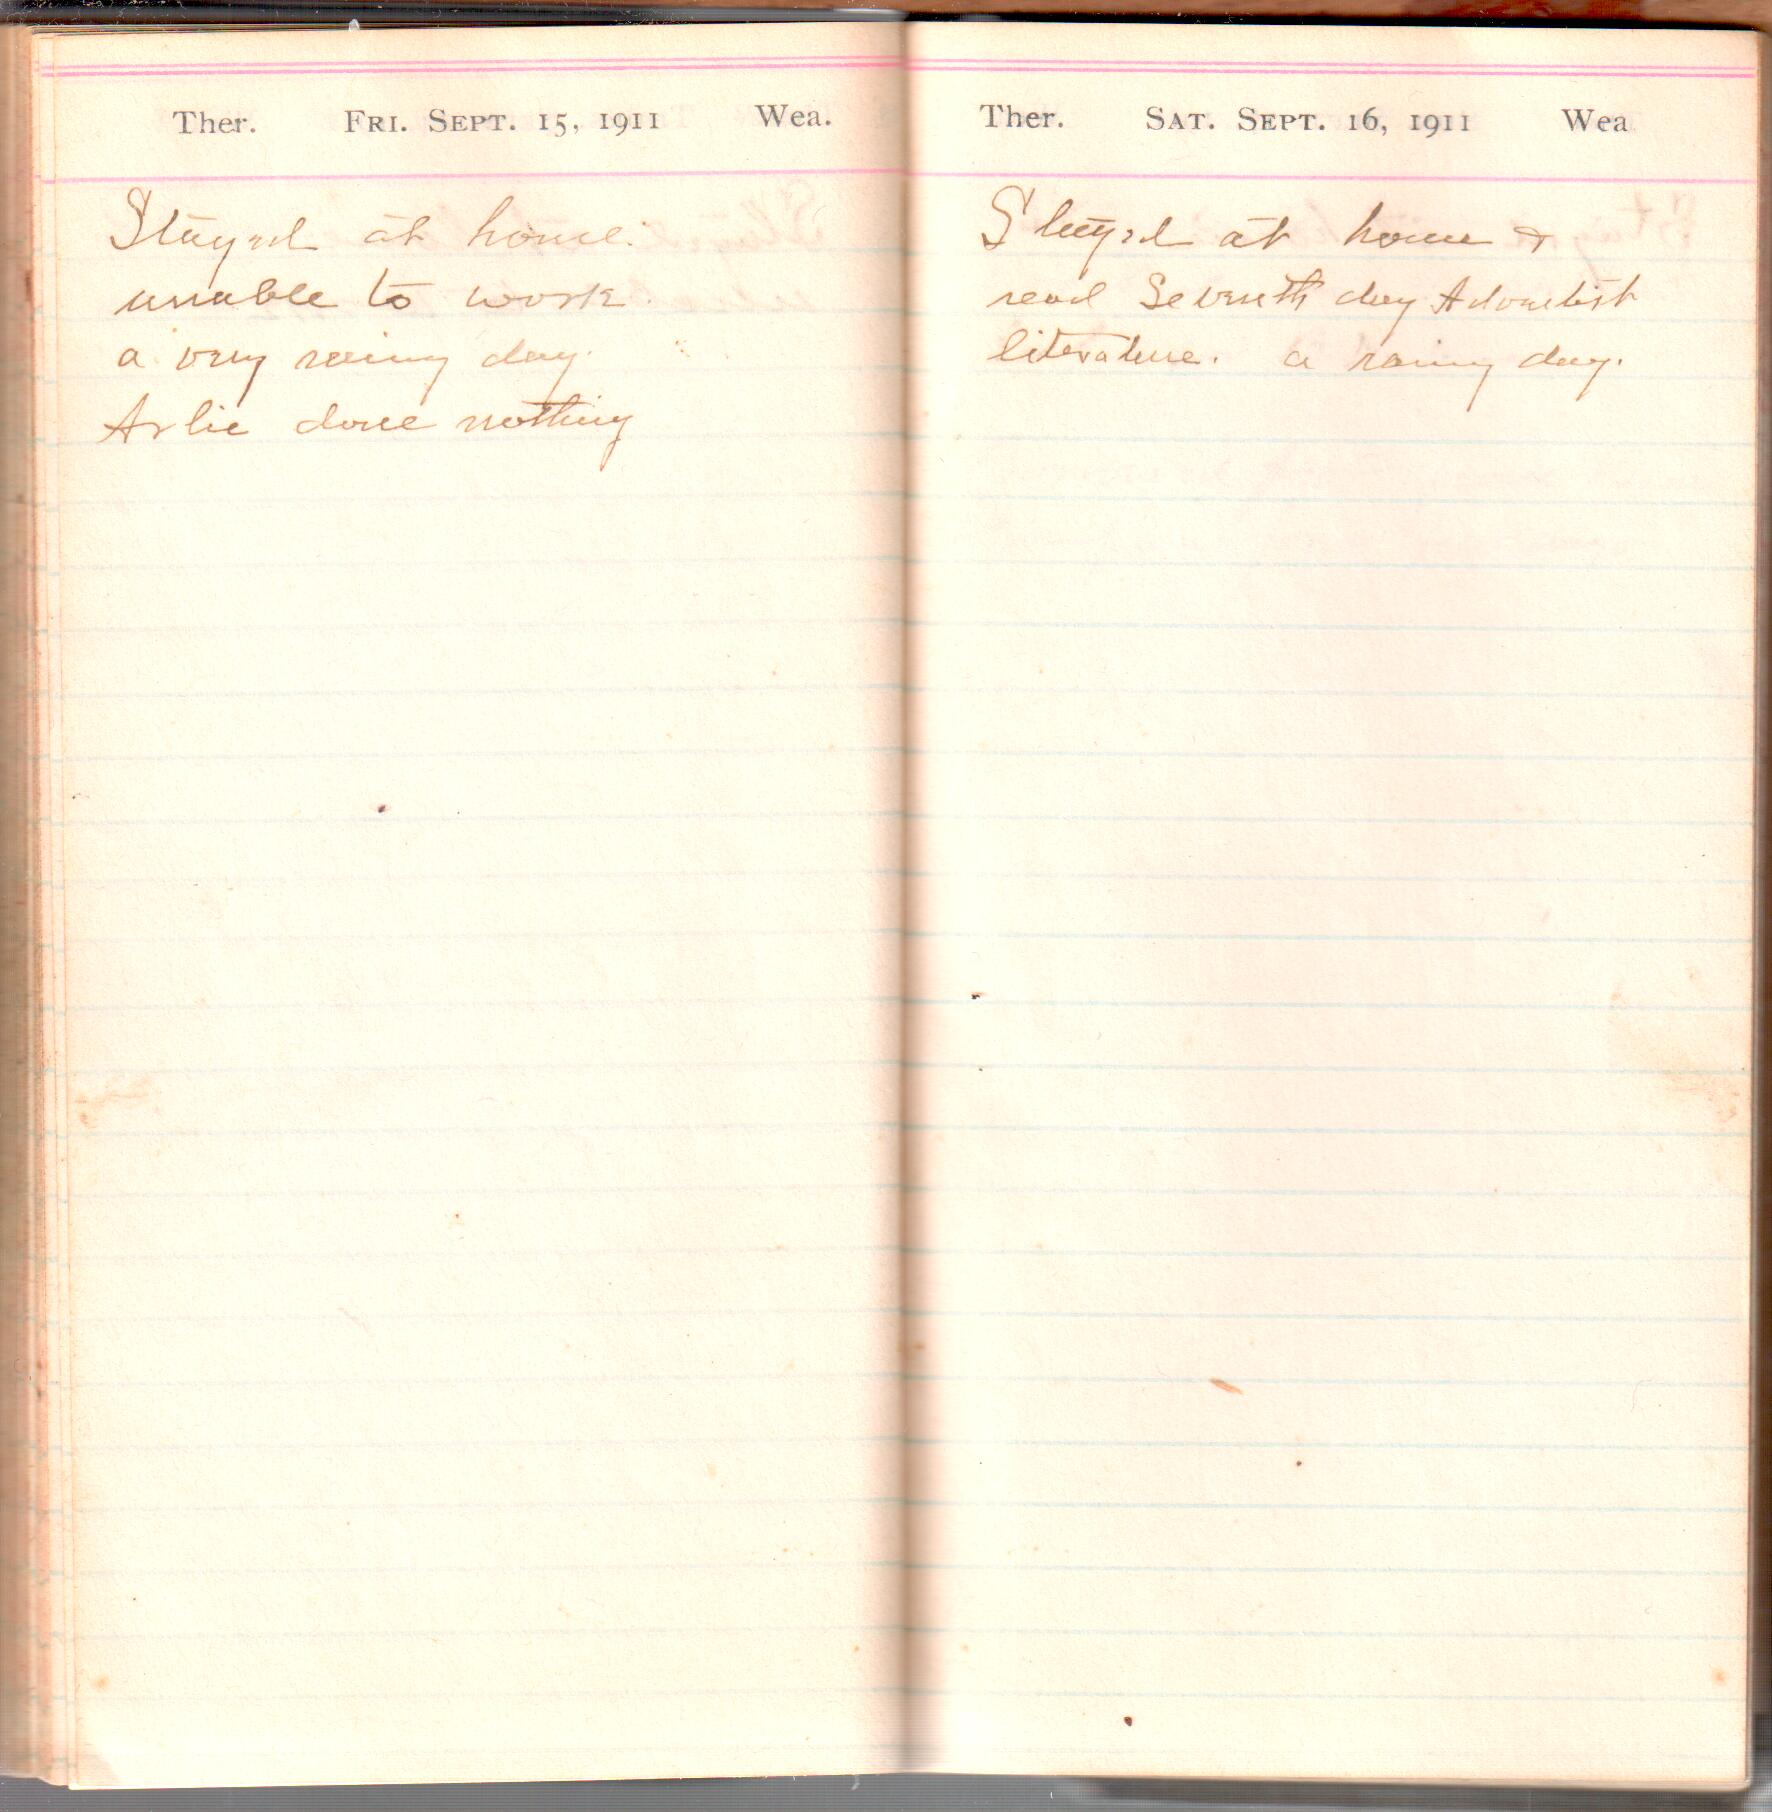 Ther. Fri. Sept. 15, 1911 Wea.
Stayed at home.
unable to work.
a very rainy day.
Arlie done nothing
Ther. Sat. Sept. 16, 1911 Wea
Stayed at home &
read Seventh day Adventist
literature. a rainy day.